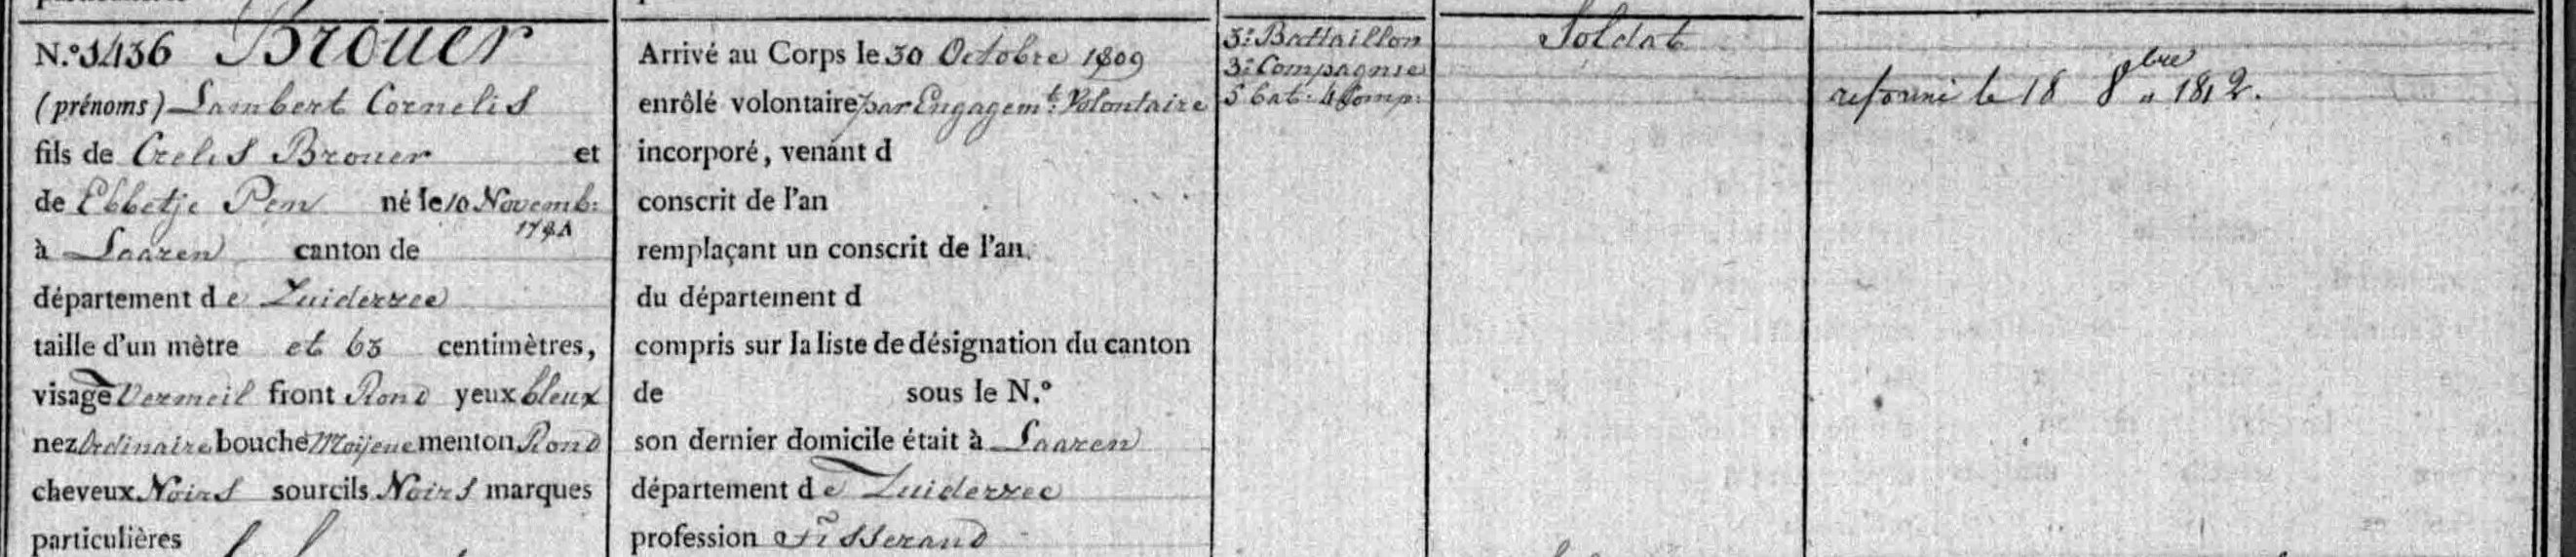 N.° 3436 Brouer
(prénoms) Lambert Cornelis
fils de Crelis Brouer et
de Ebbetje Pen né le 10 Novemb:
à Laaren canton de
département de Zuiderzee
taille d'un mètre et 63 centimètres,
visage Vermeil front Rond yeux bleux
nez Ordinaire bouche Moijene menton Rond
cheveux Noirs sourcils Noirs marques
particulières
Arrivé au Corps le 30 Octobre 1809
enrôlé volontaire par Engagem.t Volontaire
incorporé, venant d
conscrit de l'an
remplaçant un conscrit de l'an
du département d
compris sur la liste de désignation du canton
de sous le N.°
son dernier domicile était à Laaren
département de Zuiderzee
profession Tisserand
3.e Battaillon
3.e Compagnie
5 bat: 4 Comp:
Soldat
reformé le 18 8bre 1812.